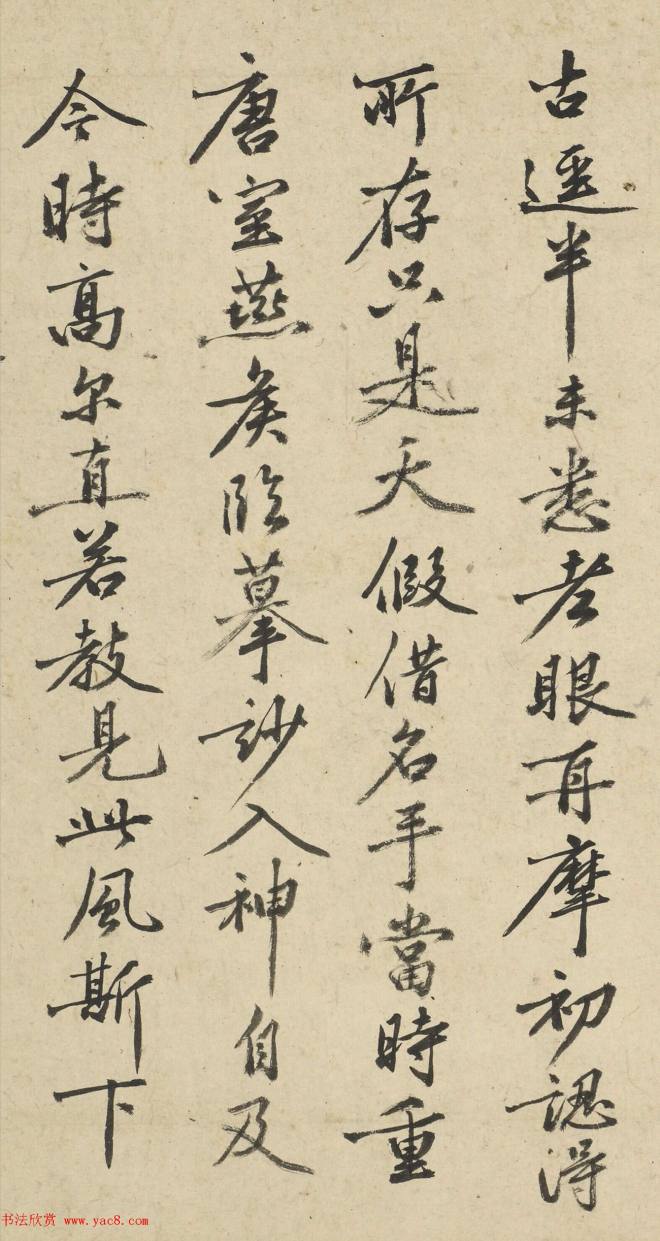 古逕半未悉老眼再摩初認得
所存只是天假借名手當時重
唐室燕矦臨摹訬入神自及
今時高尔直若教見此風斯下
书法欣赏 www.yac8.com